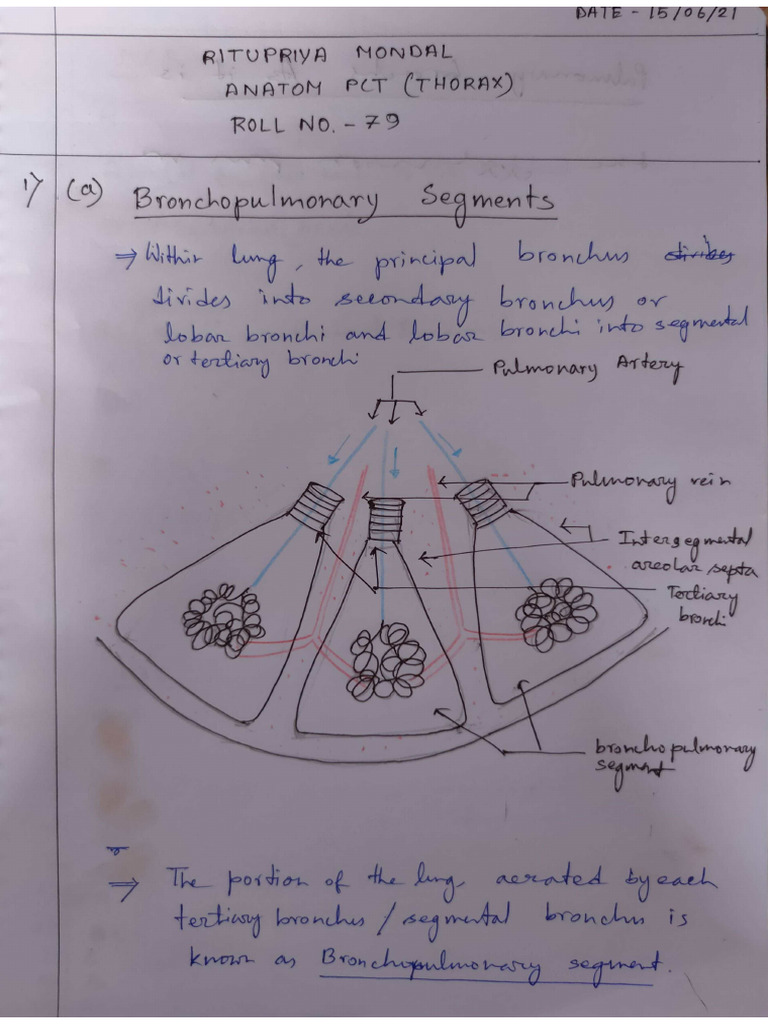 DATE - 15/06/21
RITUPRIYA MONDAL
ANATOM PCT (THORAX)
ROLL NO. - 79
1) (a) Bronchopulmonary Segments
⇒ Within lung, the principal bronchus
divides into secondary bronchus or
lobar bronchi and lobar bronchi into segmental
or tertiary bronchi
Pulmonary Artery
Pulmonary vein
Intersegmental
areolar septa
Tertiary
bronchi
bronchopulmonary
segment
⇒ The portion of the lung, aerated by each
tertiary bronchus / segmental bronchus is
known as Bronchopulmonary segment.